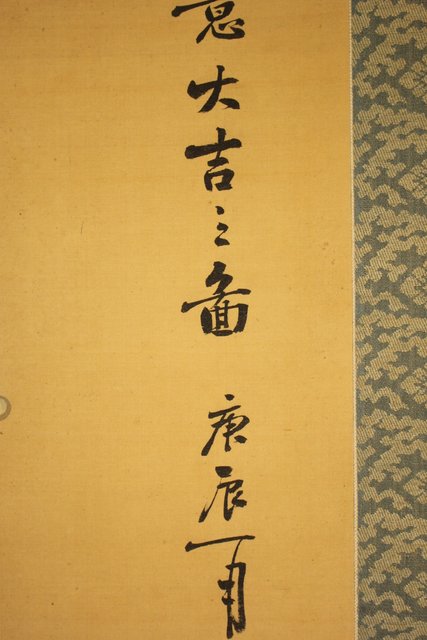 意大吉之圖 庚辰一月